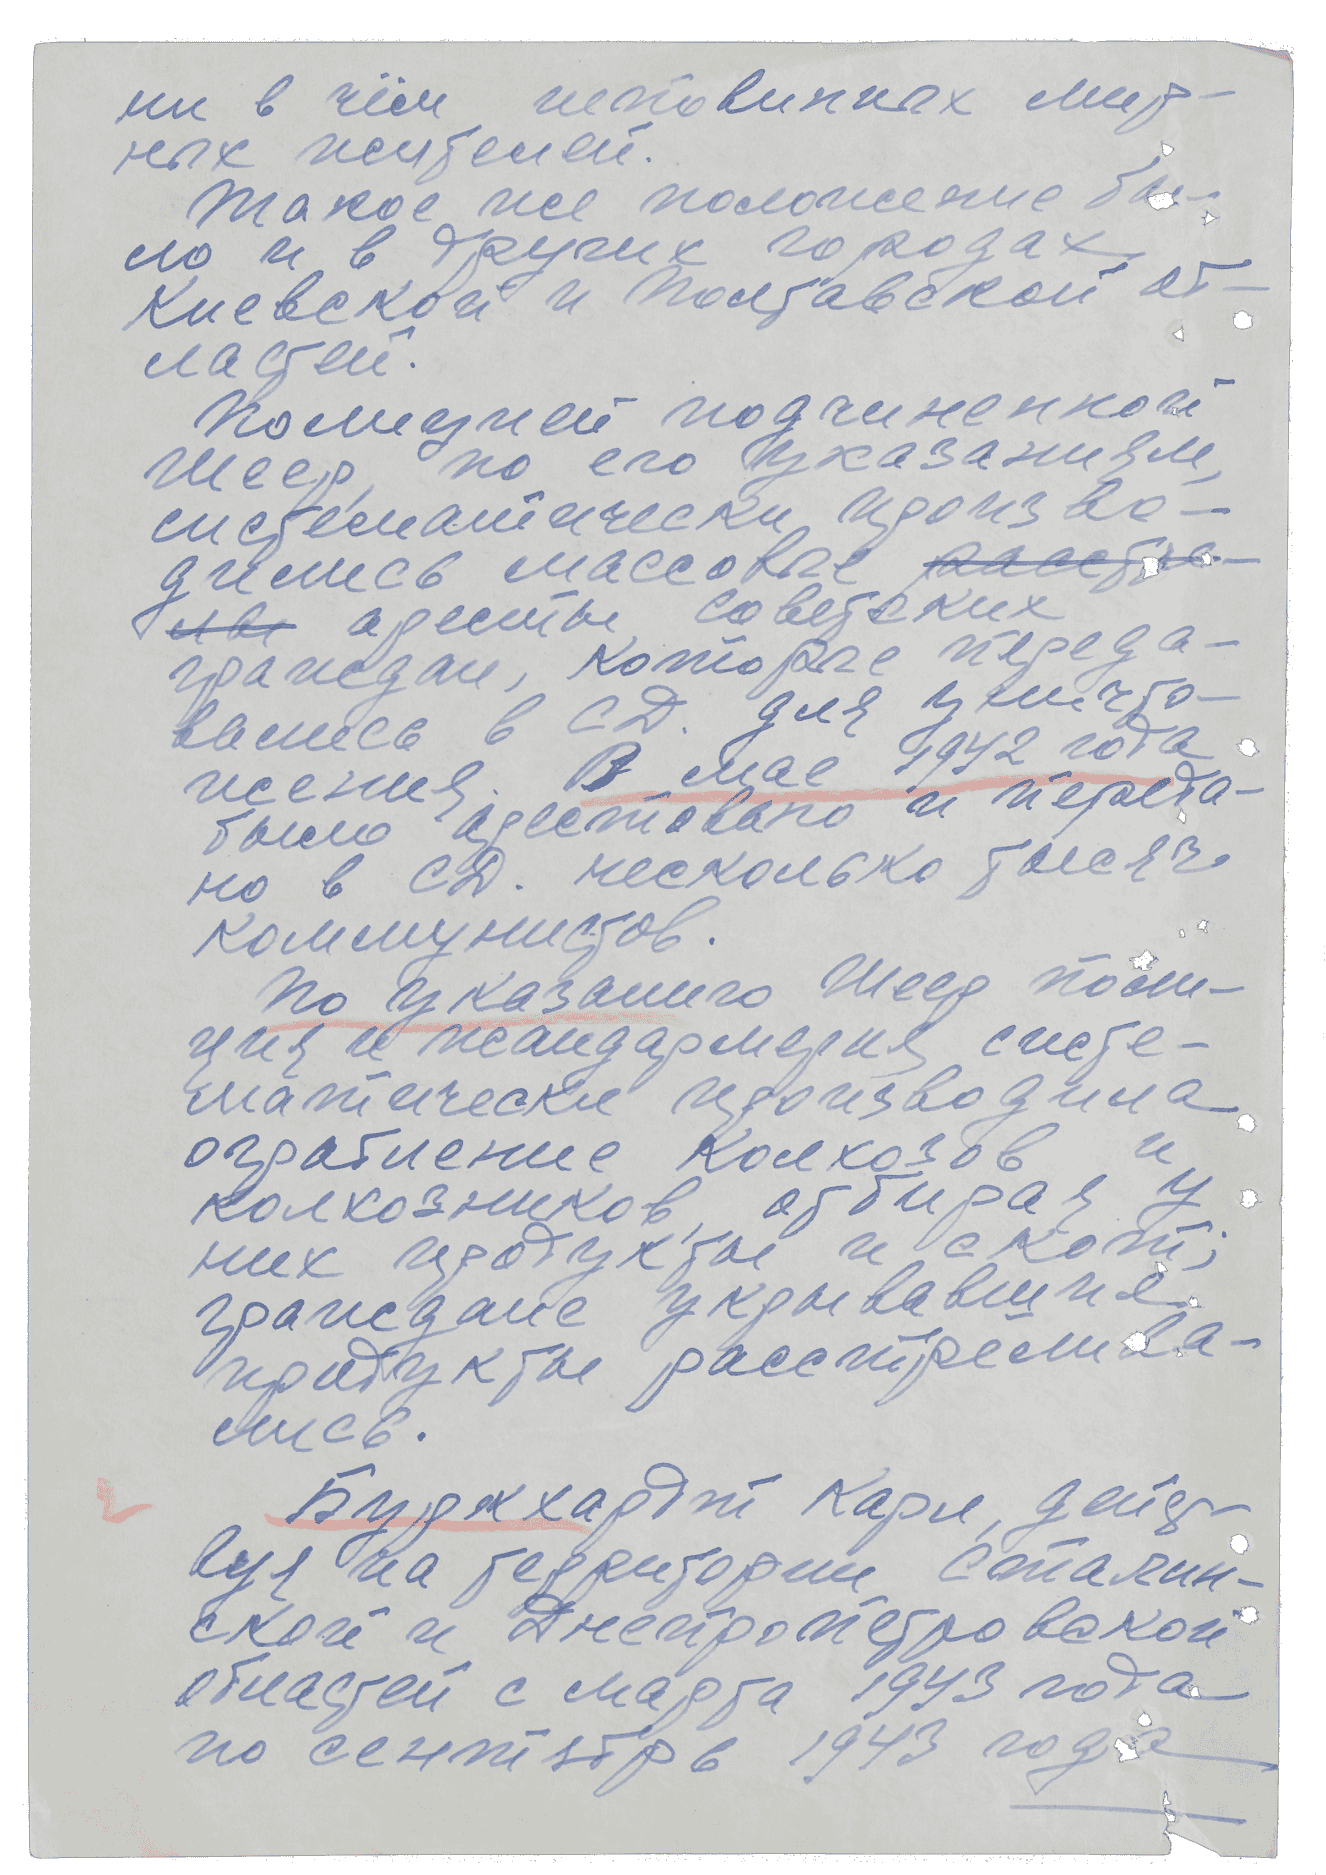 ни в чём неповинных мир-
ных жителей.
Такое же положение бы-
ло и в других городах
Киевской и Полтавской об-
ластей.
Полицией подчиненной
Шеер, по его указаниям,
систематически произво-
дились массовые расстре-
лы аресты советских
граждан, которые переда-
вались в СД. для уничто-
жения. В мае 1942 года
было арестовано и переда-
но в СД. несколько тысяч
коммунистов.
По указанию Шеер поли-
ция и жандармерия систе-
матически производила
ограбление колхозов и
колхозников, отбирая у
них продукты и скот;
граждане укрывавшия
продукты расстрелива-
лись.
Буркхардт Карл, дейст-
вуя на территории Сталин-
ской и Днепропетровской
областей с марта 1943 года
по сентябрь 1943 года